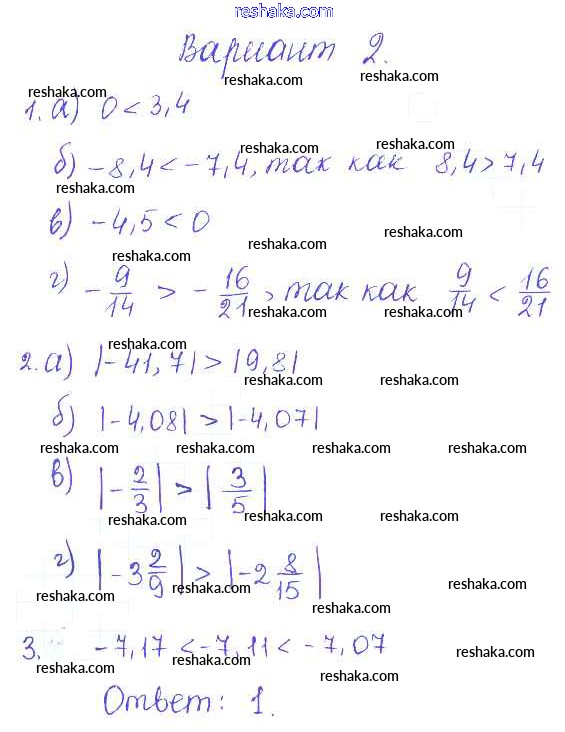 reshaka.com
Вариант 2.
reshaka.com reshaka.com
reshaka.com
1. а) 0 < 3,4
reshaka.com
б) -8,4 < -7,4, так как 8,4 > 7,4
reshaka.com reshaka.com
в) -4,5 < 0
reshaka.com reshaka.com
reshaka.com
г) -9/14 > -16/21, так как 9/14 < 16/21
reshaka.com reshaka.com reshaka.com
2. а) |-41,7| > |9,8|
reshaka.com reshaka.com
б) |-4,08| > |-4,07|
reshaka.com reshaka.com reshaka.com reshaka.com
в) |-2/3| > |3/5|
reshaka.com reshaka.com
reshaka.com
г) |-3 2/9| > |-2 8/15|
reshaka.com reshaka.com
reshaka.com
3. -7,17 < -7,11 < -7,07
reshaka.com reshaka.com reshaka.com
Ответ: 1.
reshaka.com reshaka.com